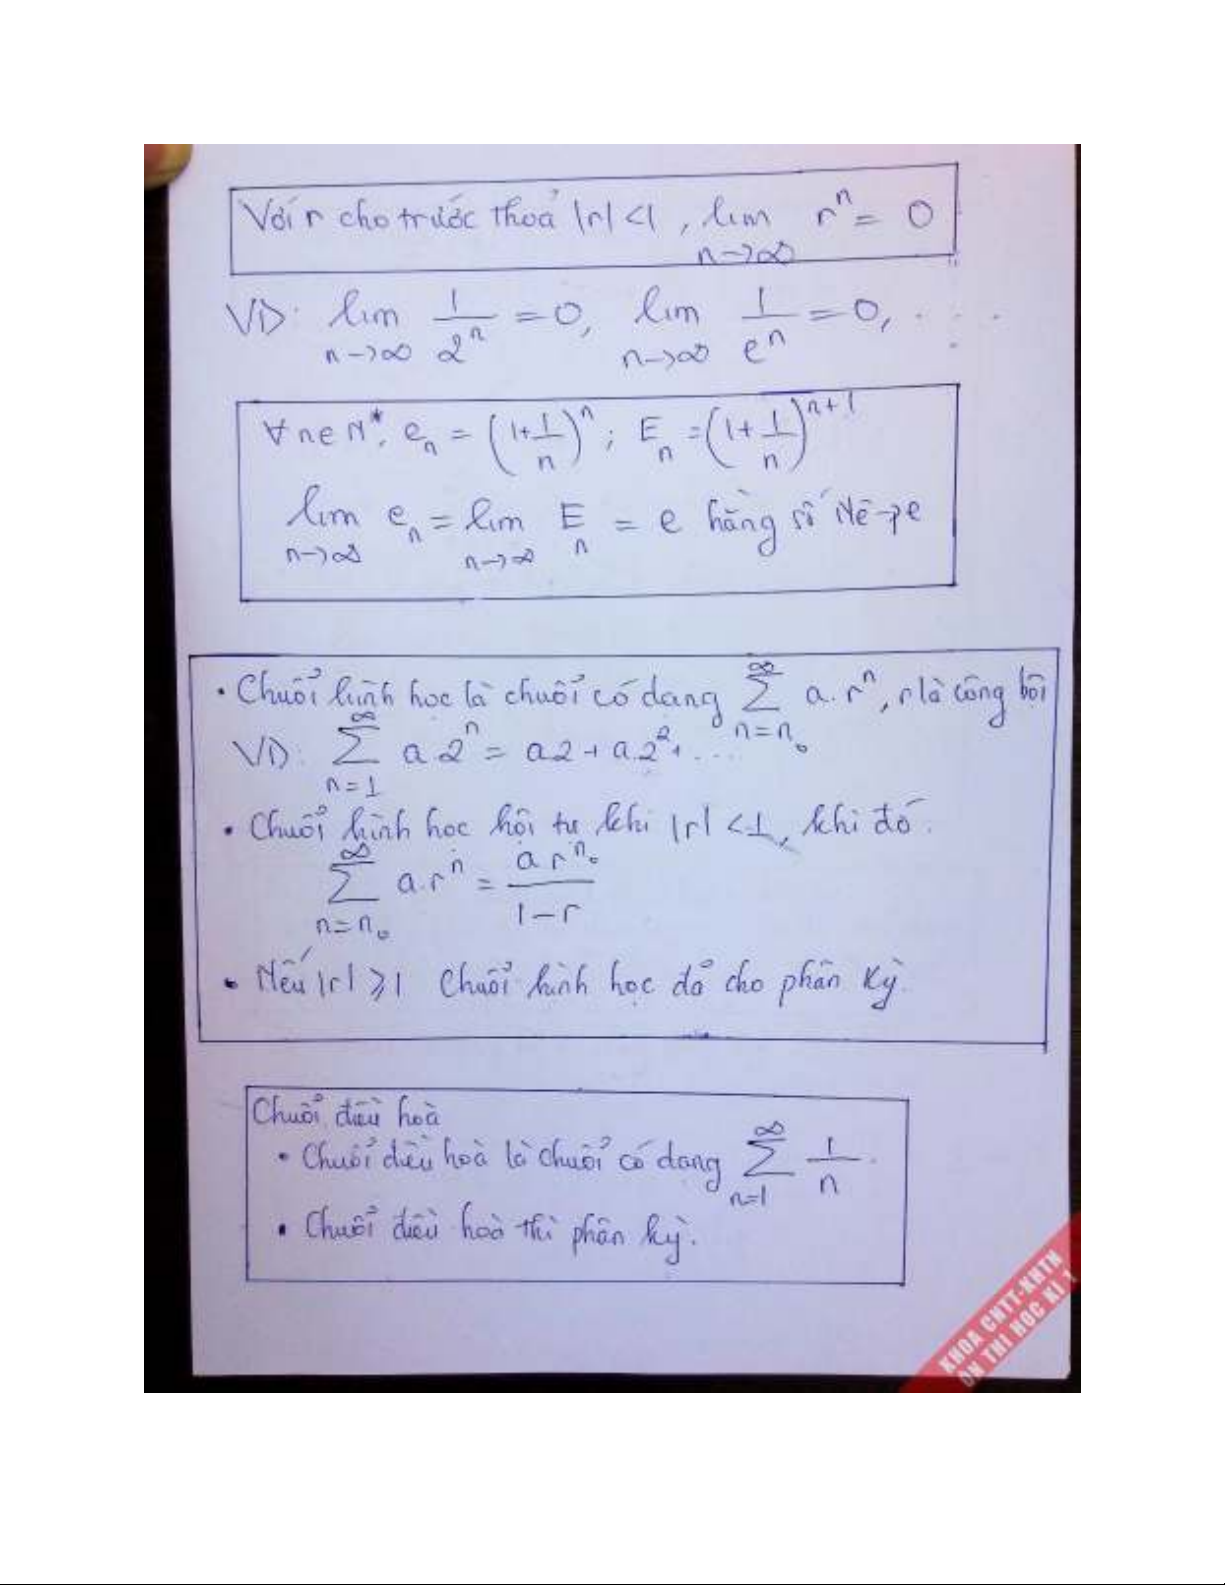 Với r cho trước thoả |r| < 1, lim_{n→∞} r^n = 0
VD: lim_{n→∞} 1/2^n = 0, lim_{n→∞} 1/e^n = 0, ...
∀n∈N*, e_n = (1+1/n)^n; E_n = (1+1/n)^{n+1}
lim_{n→∞} e_n = lim_{n→∞} E_n = e hằng số Nê-pe
• Chuỗi hình học là chuỗi có dạng ∑_{n=n₀}^{∞} a.r^n, r là công bội
VD: ∑_{n=1}^{∞} a.2^n = a.2 + a.2² + ...
• Chuỗi hình học hội tụ khi |r| < 1, khi đó:
∑_{n=n₀}^{∞} a.r^n = a r^{n₀}/(1-r)
• Nếu |r| ≥ 1 Chuỗi hình học đã cho phân kỳ.
Chuỗi điều hoà
• Chuỗi điều hoà là chuỗi có dạng ∑_{n=1}^{∞} 1/n.
• Chuỗi điều hoà thì phân kỳ.
KHOA CNTT-KHTN
ON THI HOC KI 1